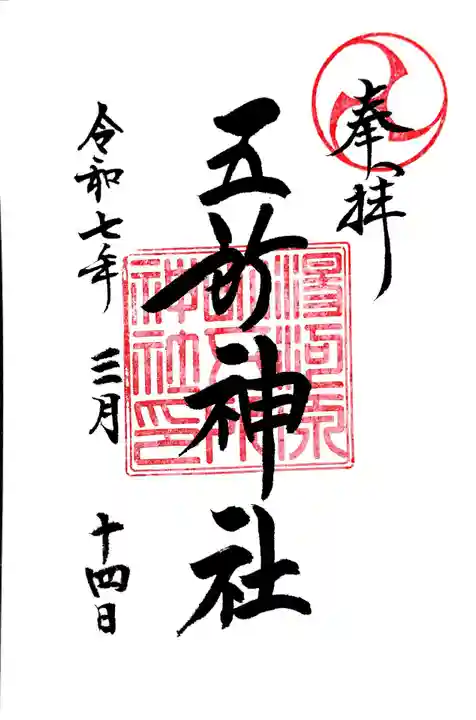 奉拝
五所神社
令和七年 三月 十四日